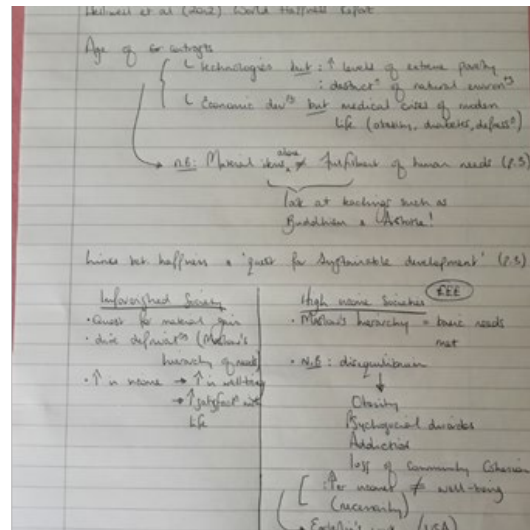 Helliwell et al (2012) World Happiness Report
Age of contrasts
↳ technologies but : ↑ levels of extreme poverty
: destructⁿ of natural environᵗˢ
↳ Economic devᵗˢ but medical crises of modern
life (obesity, diabetes, depressⁿ)
n.B: Material items alone ≠ fulfilment of human needs (p.3)
look at teachings such as
Buddhism & Aristotle!
Lines bet. happiness & 'quest for sustainable development' (p.3)
Impoverished Society
• Quest for material gain
• dire deprivatⁿ (Maslow's
hierarchy of needs)
• ↑ in income → ↑ in well-being
→ ↑ satisfactⁿ with
life
High income Societies £££
• Maslow's hierarchy = basic needs
met
• N.B : disequilibrium
↓
Obesity
Psychosocial disorders
Addiction
loss of community Cohesion
∴ ↑ income ≠ well-being
(necessarily)
(USA)